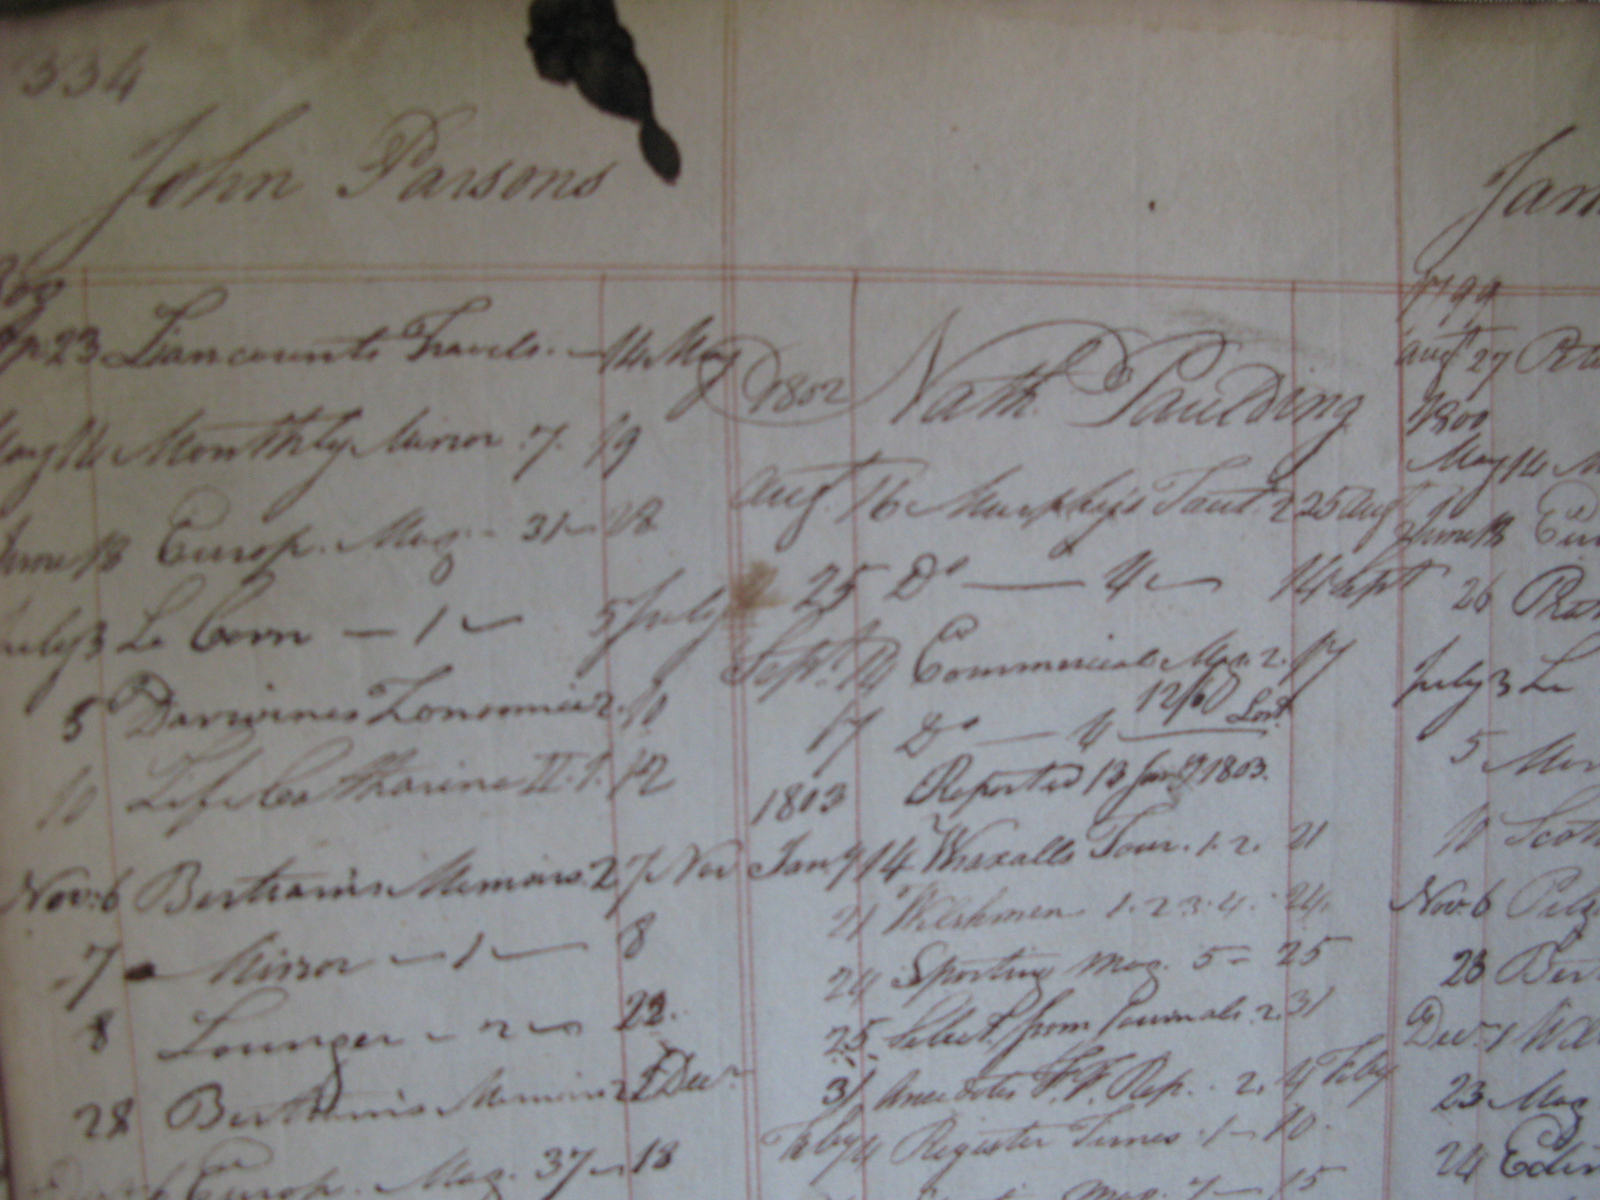 334
John Parsons
Ap. 23 Liancourts Travels. — 14 May
May 14 Monthly Mirror 7. 19
June 18 Europ. Mag. - 31 - 28
July 3 Le Coon — 1 — 5 July
5 Darwines Zonoomia 2. 10
10 Life Catharine II. 1. 12
Nov. 6 Bertrams Memoirs. 2 7 Nov
7 Mirror — 1 — 8
8 Lounger - 2 - 22.
28 Bertrams Memoirs 2 Decr
Europ. Mag. 37 - 18
1802 Nath. Paulding
Aug. 16 Murphys Taut. 2 25 Aug
25 Do — 4 — 14 Sept
Sept. 14 Commercial Mag. 2. 17
17 Do — 4 12/60 Lost
Reported 13 Jany 1803.
1803
Jany 14 Wraxalls Tour. 1. 2. 21
21 Welshmen 1. 2. 3. 4. 24.
24 Sporting Mag. 5 - 25
25 Select. from Journals. 2. 31
31 Anecdotes F. Rep. - 2. 4 Feby
Feby 4 Register Times - 1 - 10.
Mag. 7 - 15
Jam
1799
Augt 27
1800
May 14 M
June 18 Eu
26
July 3 Le
5 Mon
10 Scott
Nov. 6
28 Ber
Decr. 1
23 Mag
24 Edin